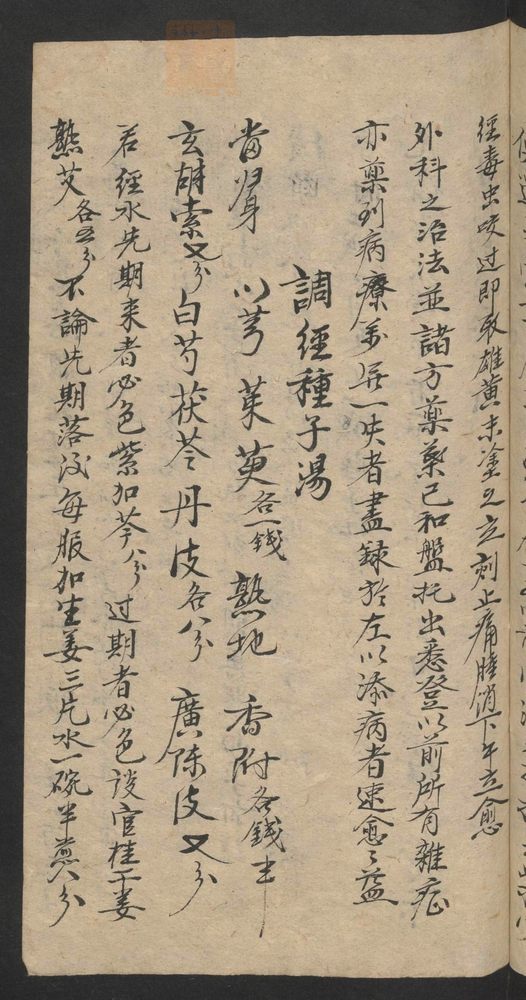 經毒虫咬过即取雄黃末塗之立刻止痛腫消下午立愈
外科之治法並諸方藥業已和盤托出悉登以前所有雜症
亦藥到病療萬无一失者盡録於左以添病者速愈之益
調經種子湯
當归身 川芎 茱萸各一錢 熟地 香附各錢半
玄胡索又分 白芍 茯苓 丹皮各八分 廣陈皮又分
若經水先期来者必色紫加芩八分 过期者必色淡官桂干姜
熟艾各五分 不論先期落後每服加生姜三片水一碗半煎八分